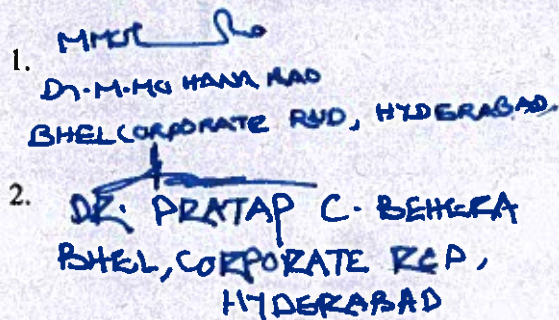 1.
Dr. M. MOHANA RAO
BHEL CORPORATE R&D, HYDERABAD
2.
DR. PRATAP C. BEHERA
BHEL, CORPORATE R&D,
HYDERABAD